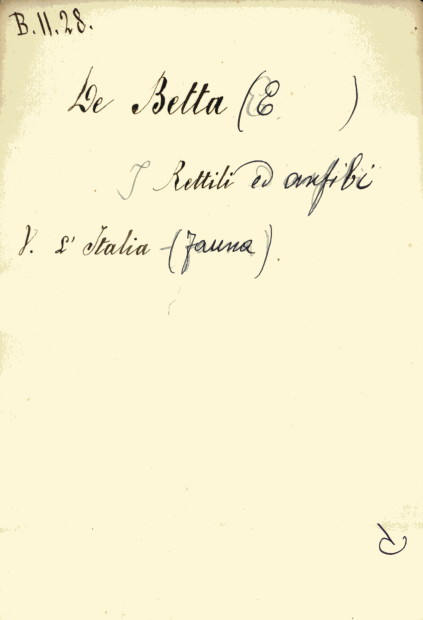 B.11.28.
De Betta (E )
I Rettili ed anfibi
V. L' Italia - (Fauna).